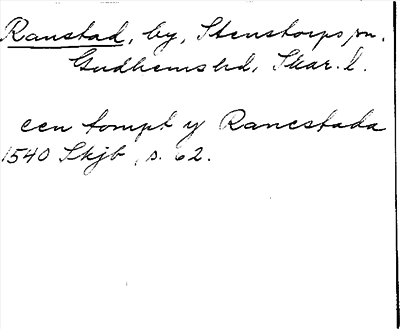 Ranstad, by, Stenstorps sn.
Gudhems hd, Skar. l.
een tompt y Ranestada
1540 Skjb, s. 62.